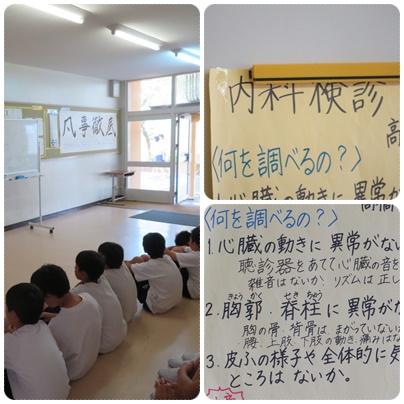 凡事徹底
内科検診
高
〈何を調べるの?〉
心臓の動きに異常が
〈何を調べるの?〉
1.心臓の動きに異常がな
聴診器をあてて心臓の音を
雑音はないか、リズムは正し
2.胸郭・脊柱に異常が
きょうかく せきちゅう
胸の骨、背骨は まがっていないか
腰、上肢、下肢の動き、痛みはな
3.皮ふの様子や全体的に気
ところは ないか。